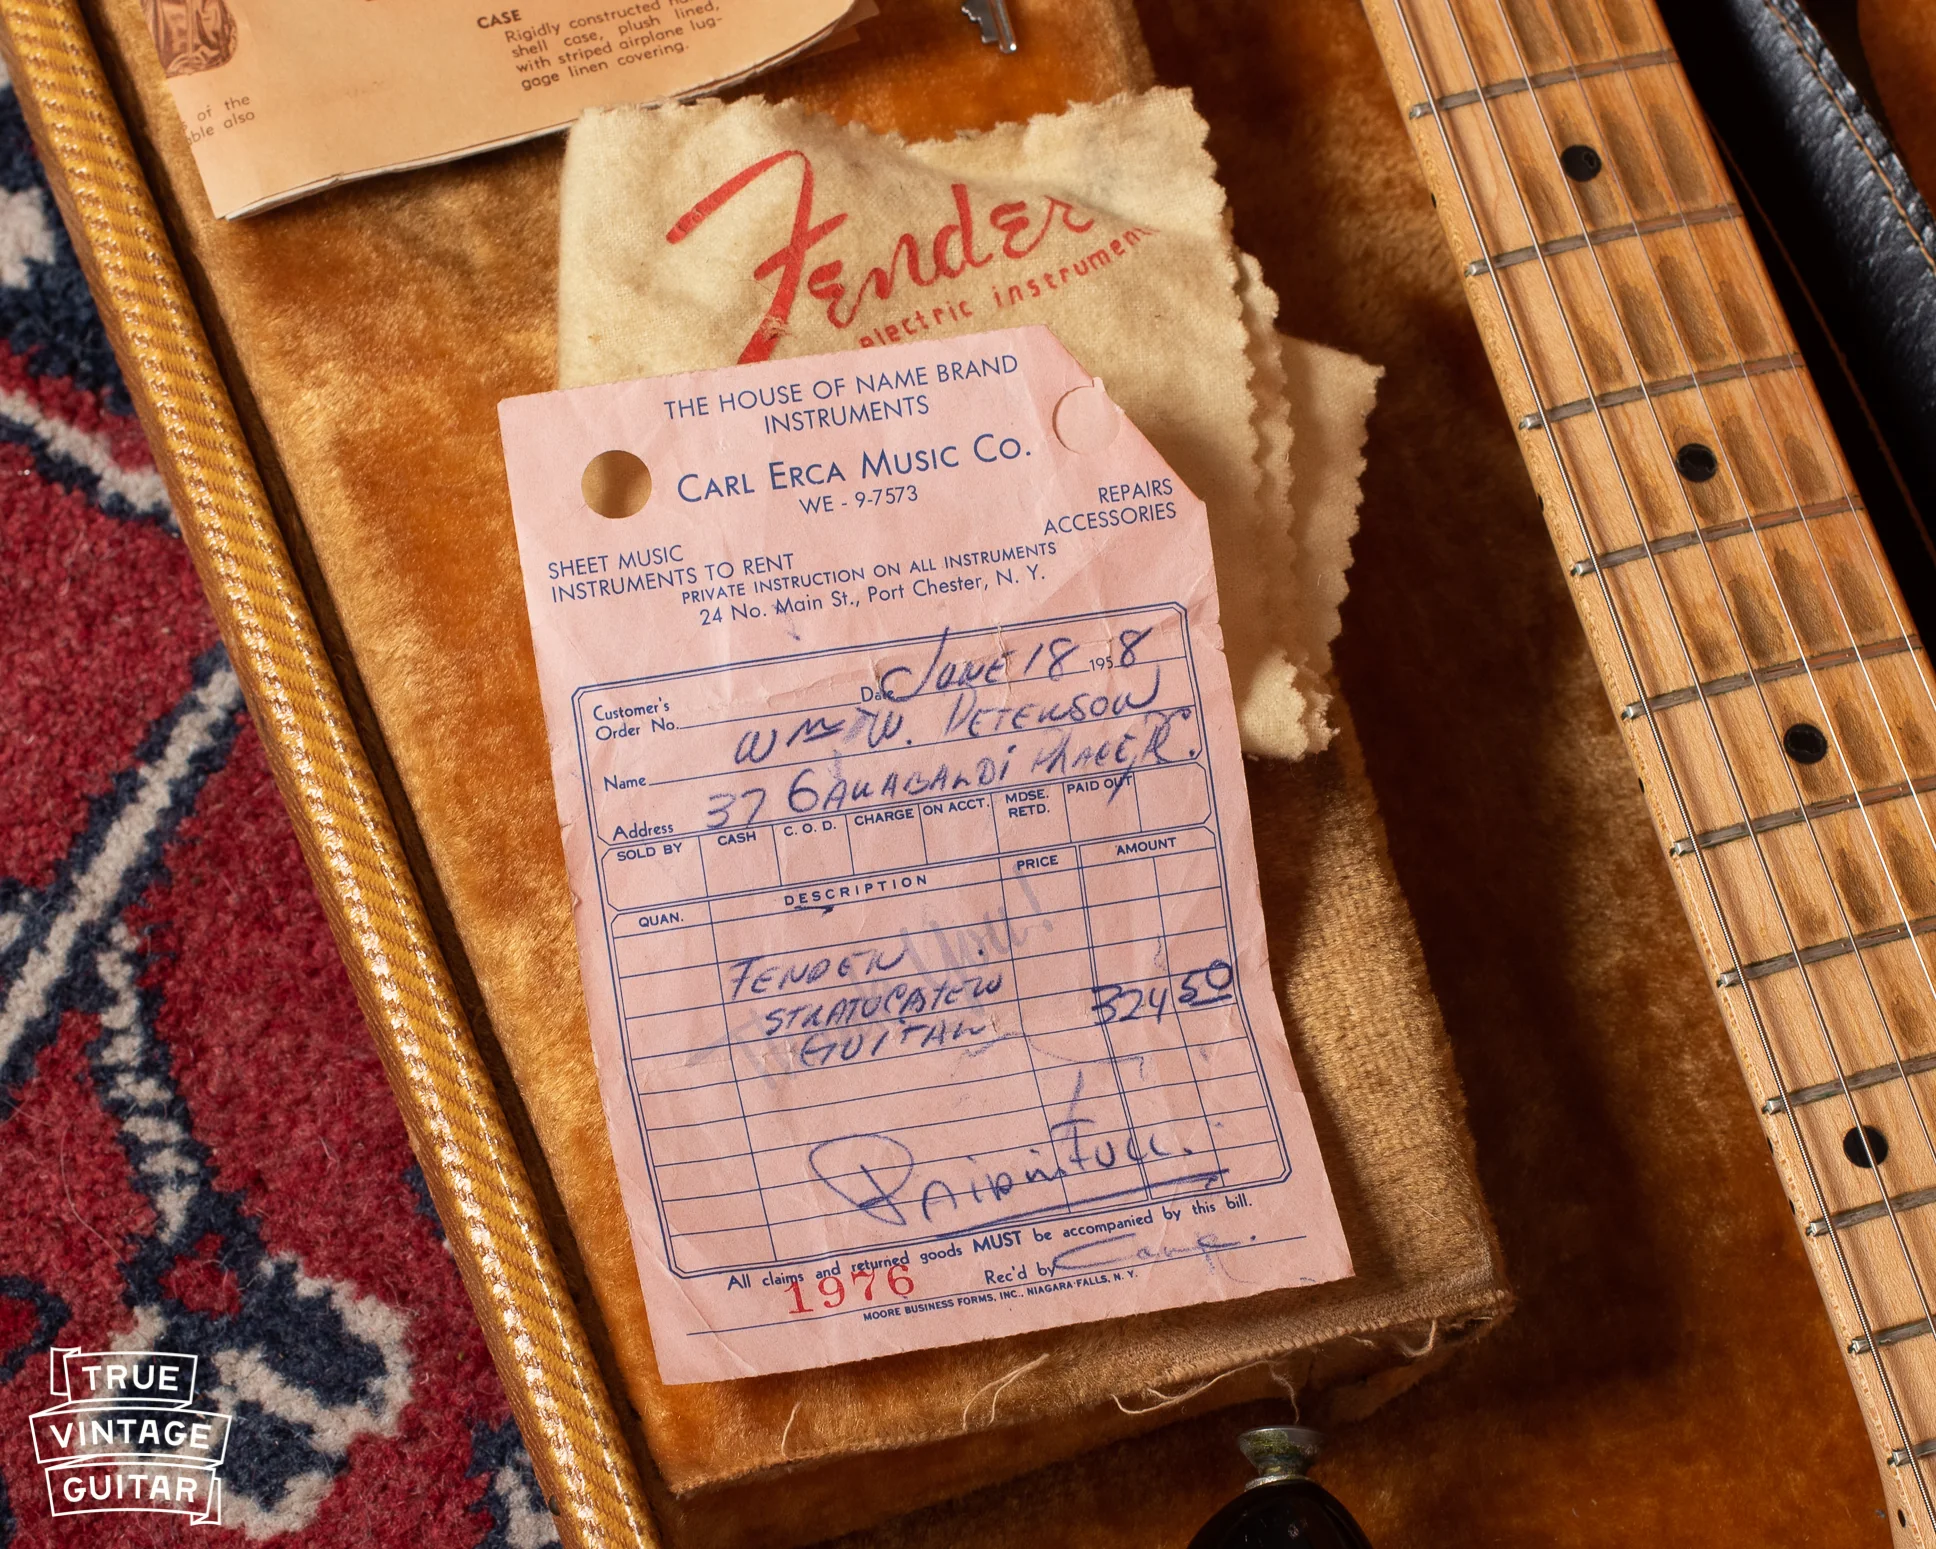 CASE
Rigidly constructed
shell case, plush lined,
with striped airplane lug-
gage linen covering.
of the
also
Fender
electric instrument
THE HOUSE OF NAME BRAND
INSTRUMENTS
CARL ERCA MUSIC CO.
WE - 9-7573
REPAIRS
ACCESSORIES
SHEET MUSIC
INSTRUMENTS TO RENT
PRIVATE INSTRUCTION ON ALL INSTRUMENTS
24 No. Main St., Port Chester, N. Y.
Customer's
Order No.
Date JUNE 18 1958
Name Wm W. PETERSON
Address 37 GARABALDI PLACE
SOLD BY CASH C. O. D. CHARGE ON ACCT. MDSE. RETD. PAID OUT
QUAN. DESCRIPTION PRICE AMOUNT
FENDER
STRATOCASTER 324 50
GUITAR
Thank You!
PAID IN FULL.
All claims and returned goods MUST be accompanied by this bill.
1976 Rec'd by
MOORE BUSINESS FORMS, INC., NIAGARA FALLS, N. Y.
TRUE
VINTAGE
GUITAR